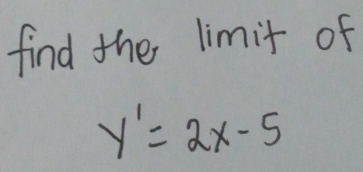 find the limit of
y' = 2x - 5